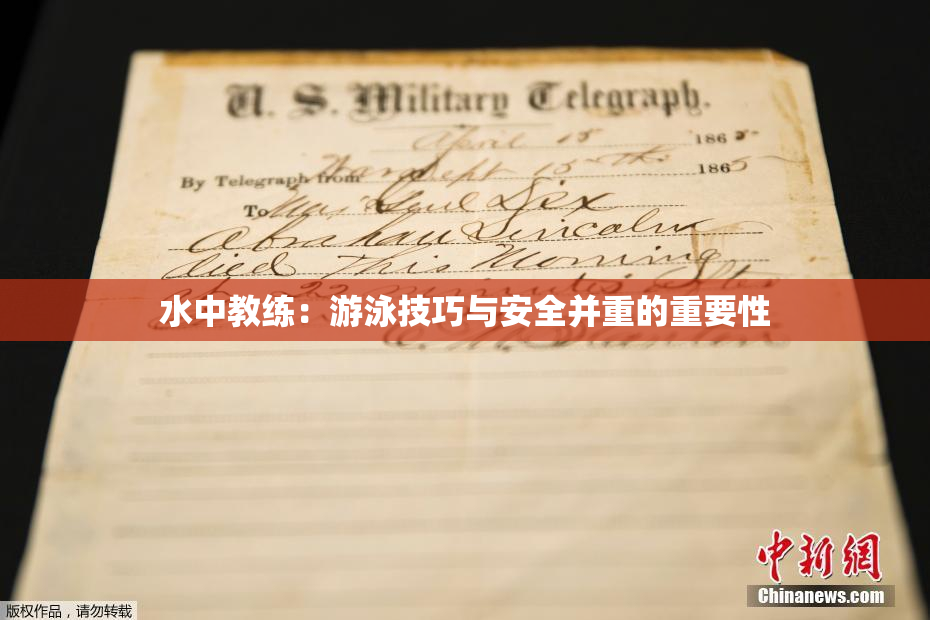 U. S. Military Telegraph.
April 15 1865
By Telegraph from War Dept 15th 1865
To Maj Genl Dix
Abraham Lincoln
died This Morning
at 22 minutes after
水中教练：游泳技巧与安全并重的重要性
E. M. Stanton
中新网
Chinanews.com
版权作品，请勿转载